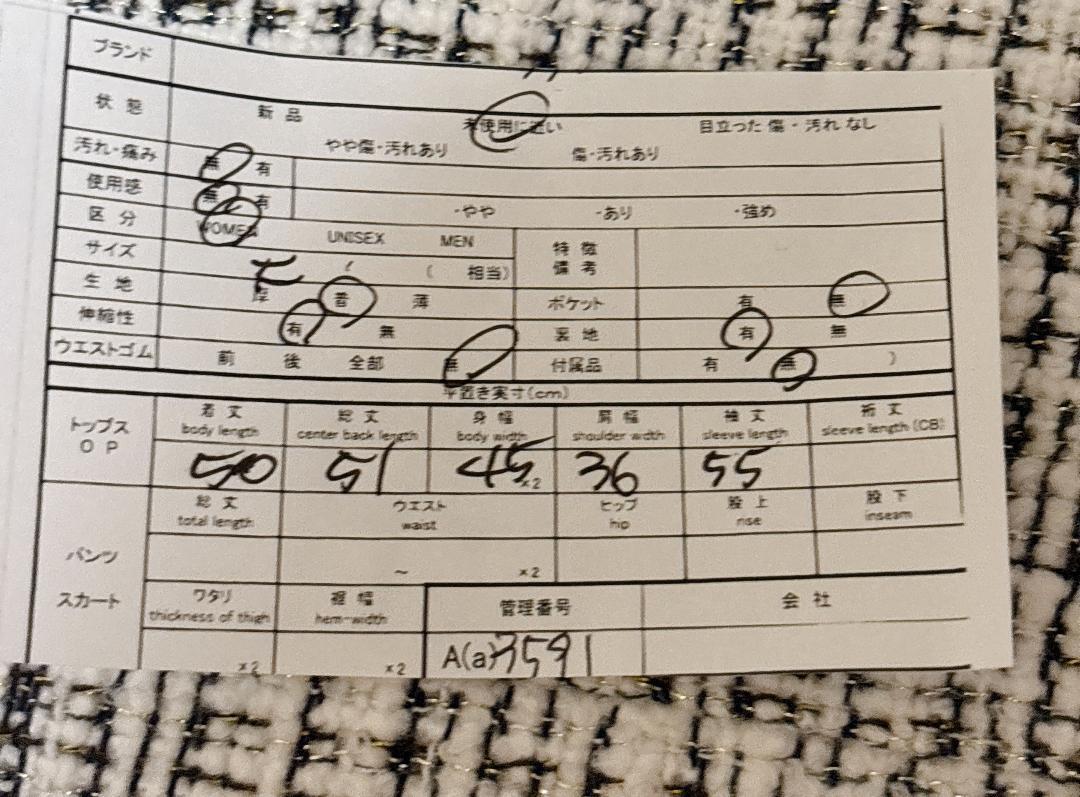 ブランド
状態 新品 未使用に近い 目立った傷・汚れなし
やや傷・汚れあり 傷・汚れあり
汚れ・痛み 無 有
使用感 無 有 ・やや ・あり ・強め
区分 WOMEN UNISEX MEN 特徴
サイズ F ( ( 相当) 備考
生地 厚 普 薄 ポケット 有 無
伸縮性 有 無 裏地 有 無
ウエストゴム 前 後 全部 無 付属品 有 無 )
平置き実寸(cm)
トップス 着丈 総丈 身幅 肩幅 袖丈 裄丈
OP body length center back length body width shoulder width sleeve length sleeve length (CB)
50 51 45 ×2 36 55
総丈 ウエスト ヒップ 股上 股下
total length waist hip rise inseam
パンツ ～ ×2
スカート ワタリ 裾幅 管理番号 会社
thickness of thigh hem-width
×2 ×2 A(a)3591